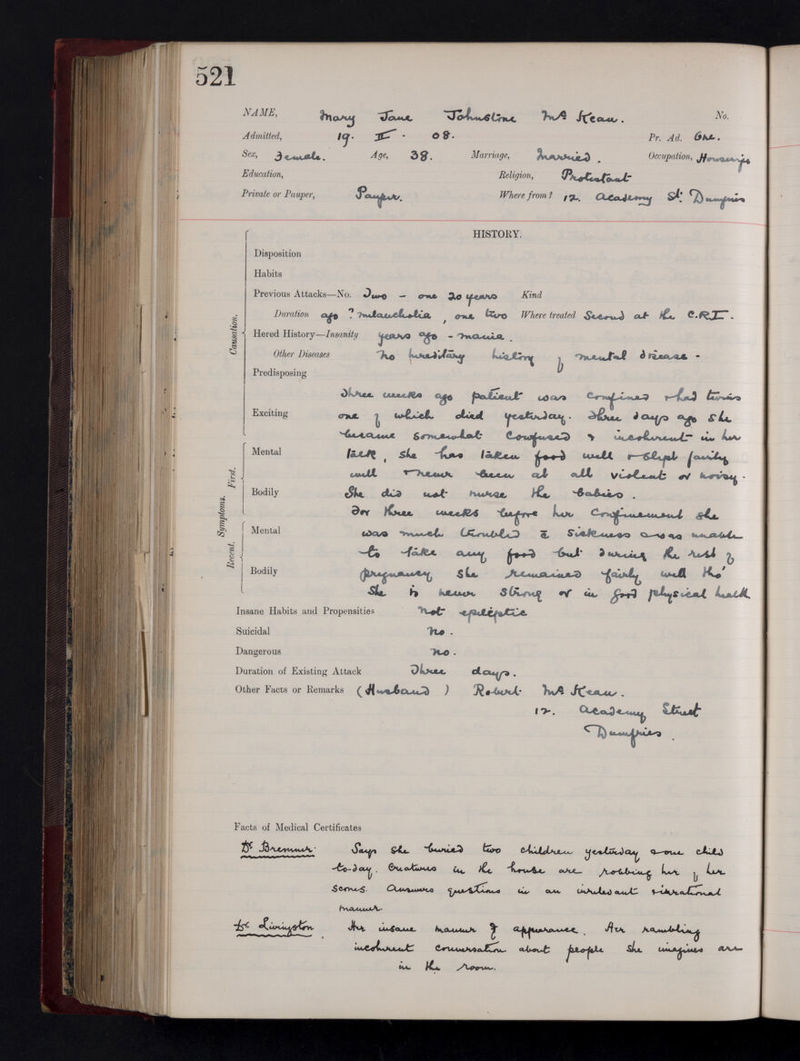 521
NAME, Mary Jane Johnstone McKean. No.
Admitted, 19. II. 08. Pr. Ad. One.
Sex, Female. Age, 38. Marriage, Married. Occupation, Housewife
Education, Religion, Protestant
Private or Pauper, Pauper. Where from? 12. Academy St. Dumfries
HISTORY.
Disposition
Habits
Previous Attacks—No. Two - one 20 years Kind
Duration ago ? melancholia, one two Where treated Second at the C.R.I.
Hered History—Insanity years ago - mania.
Other Diseases No hereditary history of mental disease -
Predisposing
Three weeks ago patient was confined & had twins
Exciting one of which died yesterday. Three days ago she
became somewhat confused & incoherent in her
Mental talk, she has taken food well & slept fairly
well & never been at all violent or noisy.
Bodily She did not nurse the babies.
For three weeks before her confinement she
Mental was much troubled c sickness & was unable
to take any food but during the rest of
Bodily pregnancy she remained fairly well tho'
She is never strong or in good physical health
Insane Habits and Propensities Not epileptic
Suicidal No.
Dangerous No.
Duration of Existing Attack Three days.
Other Facts or Remarks (Husband) Robert McKean.
12. Academy Street
Dumfries.
Causation.
Symptoms.
First.
Recent.
Facts of Medical Certificates
Dr Bremner. Says she buried two children yesterday & one child
to-day. Creatures in the house are robbing her of her
senses. Answers questions in an irrelevant & irrational
manner.
Dr Livingston Her insane manner & appearance. Her rambling
incoherent conversation about people she imagines are
in the room.